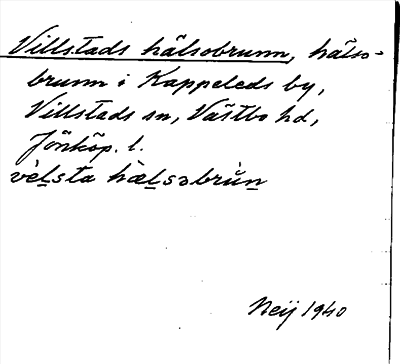 Villstads hälsobrunn, hälso-
brunn i Kappeleds by,
Villstads sn, Västbo hd,
Jönköp. l.
vèl̲sta hàl̲səbrùn̲
Neij 1940